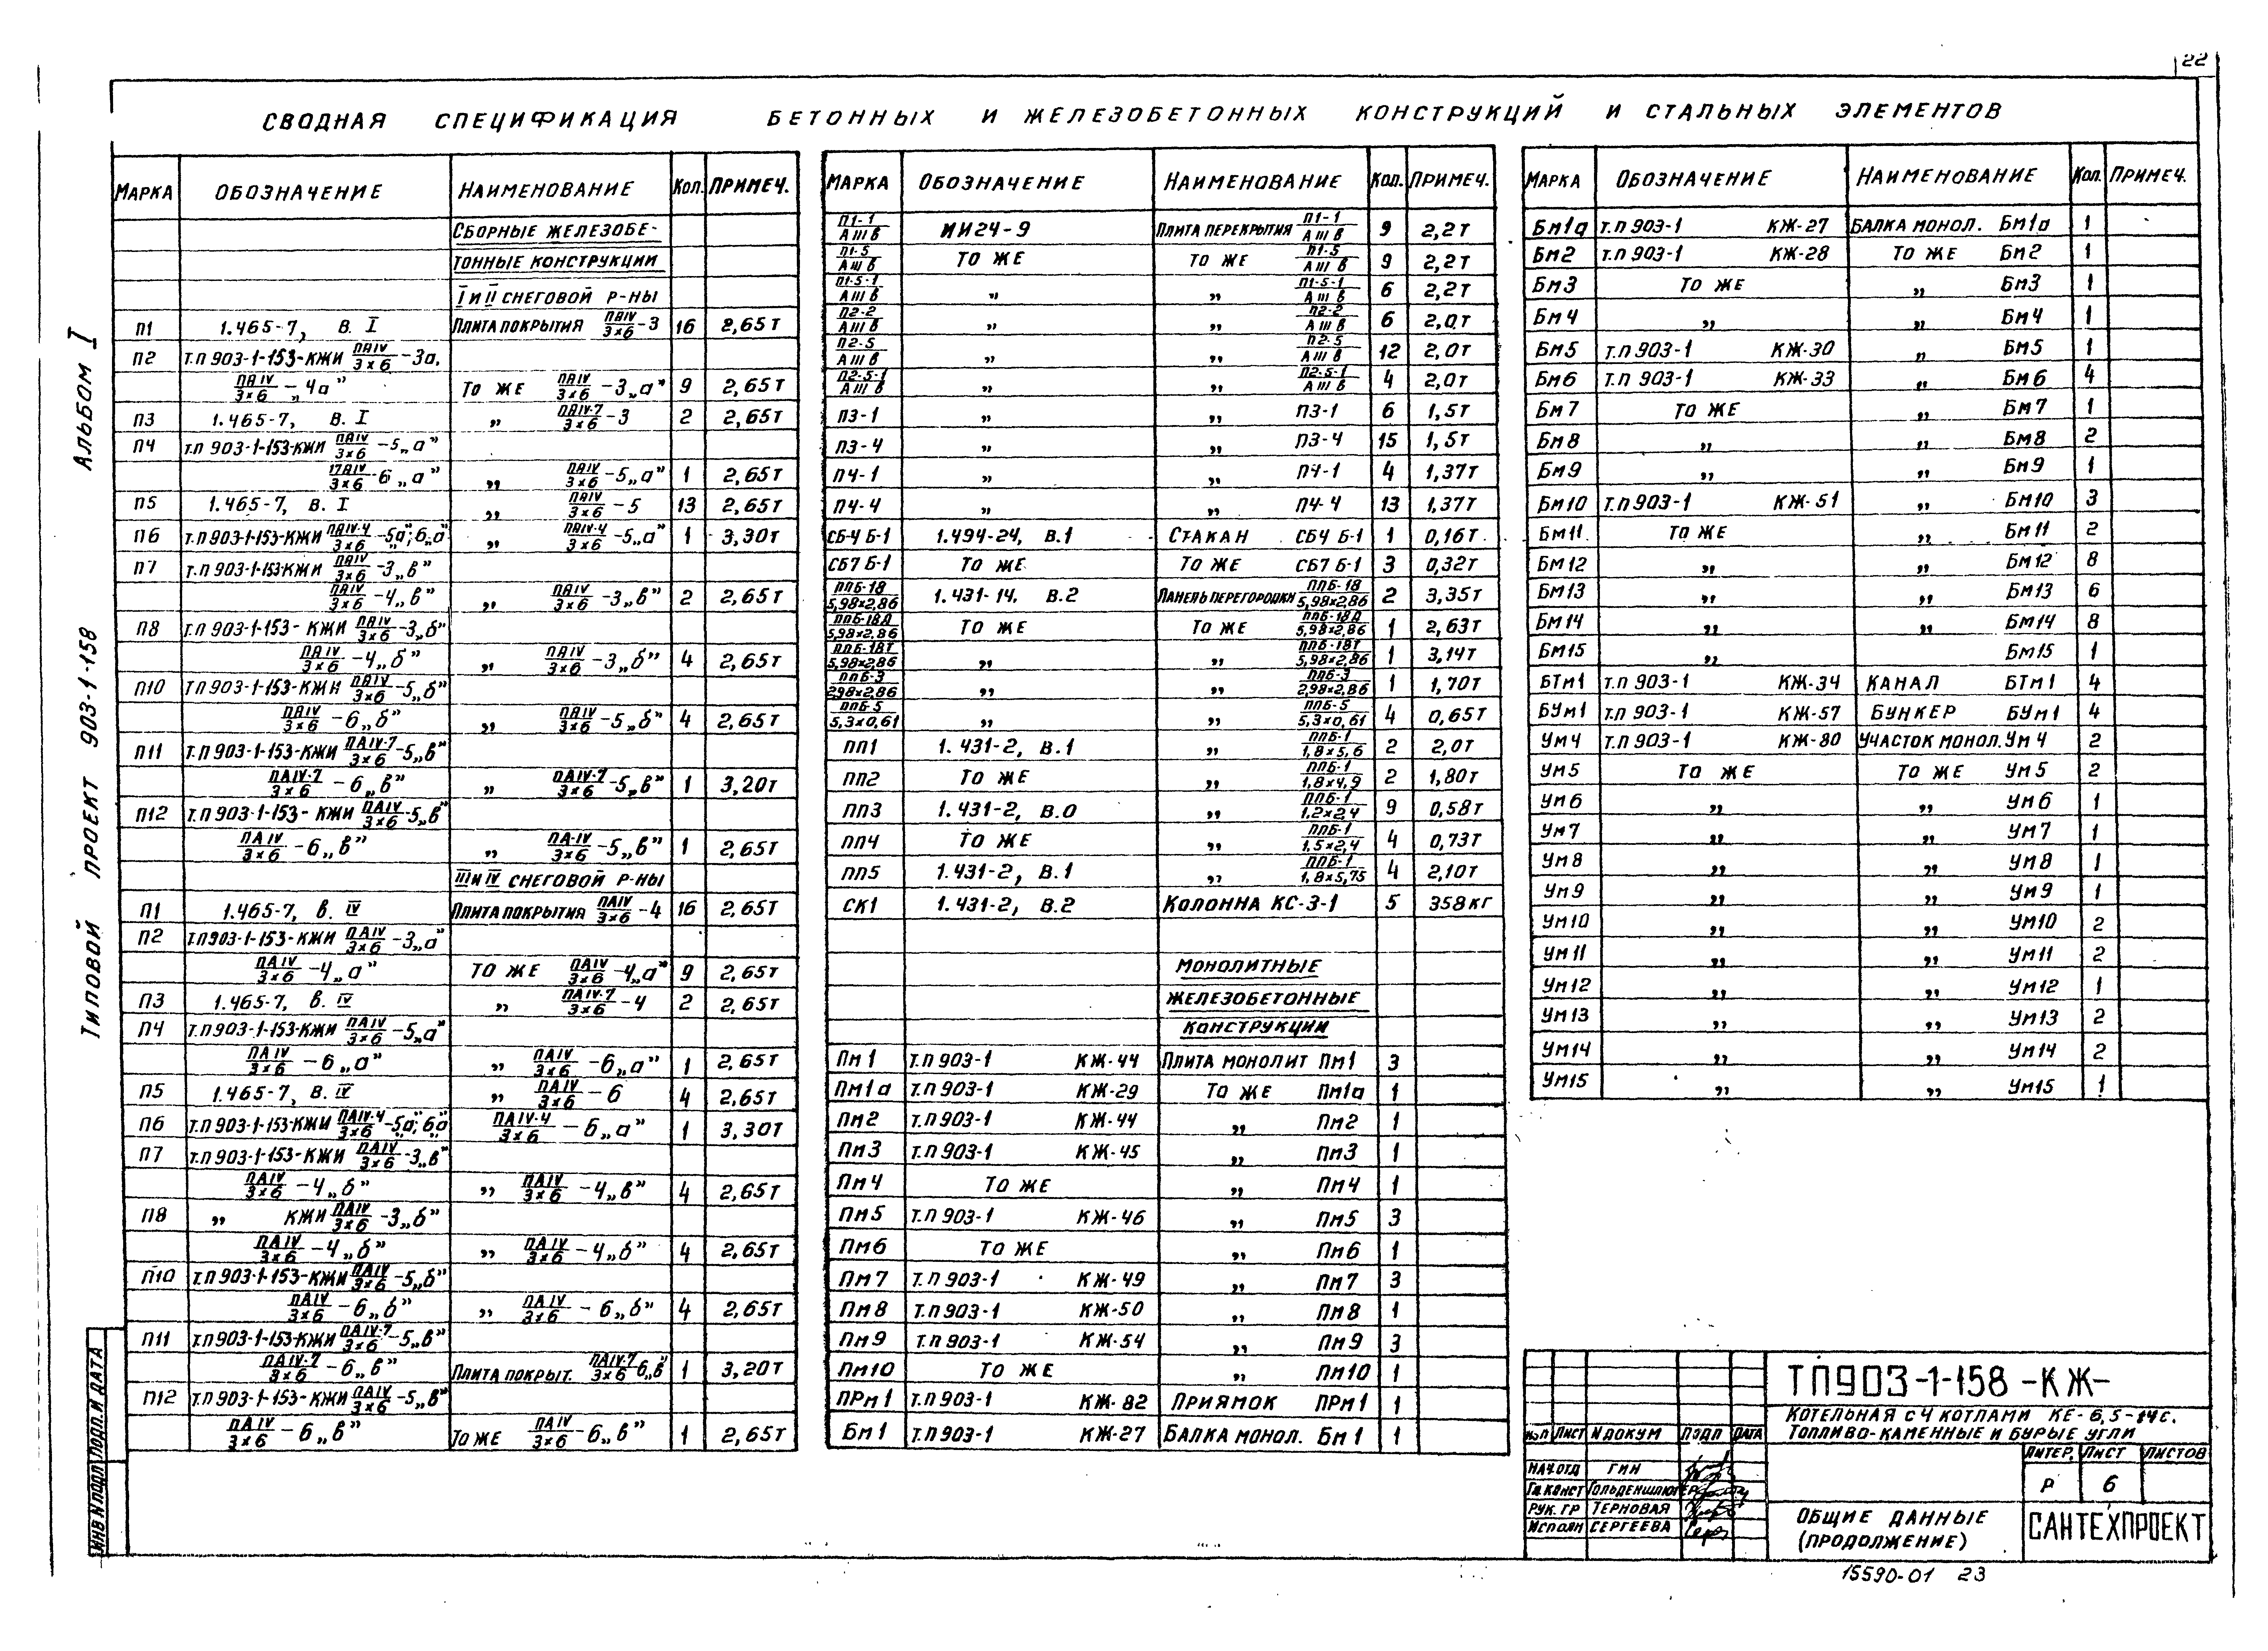 22
СВОДНАЯ СПЕЦИФИКАЦИЯ БЕТОННЫХ И ЖЕЛЕЗОБЕТОННЫХ КОНСТРУКЦИЙ И СТАЛЬНЫХ ЭЛЕМЕНТОВ
ТИПОВОЙ ПРОЕКТ 903-1-158 АЛЬБОМ I
МАРКА ОБОЗНАЧЕНИЕ НАИМЕНОВАНИЕ КОЛ. ПРИМЕЧ.
СБОРНЫЕ ЖЕЛЕЗОБЕ-
ТОННЫЕ КОНСТРУКЦИИ
I И II СНЕГОВОЙ Р-НЫ
П1 1.465-7, В. I ПЛИТА ПОКРЫТИЯ ПАIV/3×6-3 16 2,65Т
П2 Т.П 903-1-153-КЖИ ПАIV/3×6-3а,
ПАIV/3×6-„4а” ТО ЖЕ ПАIV/3×6-3„а” 9 2,65Т
П3 1.465-7, В. I „ ПАIV-7/3×6-3 2 2,65Т
П4 Т.П 903-1-153-КЖИ ПАIV/3×6-5„а”
ПАIV/3×6-6„а” „ ПАIV/3×6-5„а” 1 2,65Т
П5 1.465-7, В. I „ ПАIV/3×6-5 13 2,65Т
П6 Т.П 903-1-153-КЖИ ПАIV-4/3×6-5„а”;6„а” „ ПАIV-4/3×6-5„а” 1 3,30Т
П7 Т.П 903-1-153-КЖИ ПАIV/3×6-3„в”
ПАIV/3×6-4„в” „ ПАIV/3×6-3„в” 2 2,65Т
П8 Т.П 903-1-153-КЖИ ПАIV/3×6-3„б”
ПАIV/3×6-4„б” „ ПАIV/3×6-3„б” 4 2,65Т
П10 Т.П 903-1-153-КЖИ ПАIV/3×6-5„б”
ПАIV/3×6-6„б” „ ПАIV/3×6-5„б” 4 2,65Т
П11 Т.П 903-1-153-КЖИ ПАIV-7/3×6-5„в”
ПАIV-7/3×6-6„в” „ ПАIV-7/3×6-5„в” 1 3,20Т
П12 Т.П 903-1-153-КЖИ ПАIV/3×6-5„в”
ПАIV/3×6-6„в” „ ПА-IV/3×6-5„в” 1 2,65Т
III И IV СНЕГОВОЙ Р-НЫ
П1 1.465-7, В. IV ПЛИТА ПОКРЫТИЯ ПАIV/3×6-4 16 2,65Т
П2 Т.П 903-1-153-КЖИ ПАIV/3×6-3„а”
ПАIV/3×6-4„а” ТО ЖЕ ПАIV/3×6-4„а” 9 2,65Т
П3 1.465-7, В. IV „ ПАIV-7/3×6-4 2 2,65Т
П4 Т.П 903-1-153-КЖИ ПАIV/3×6-5„а”
ПАIV/3×6-6„а” „ ПАIV/3×6-6„а” 1 2,65Т
П5 1.465-7, В. IV „ ПАIV/3×6-6 4 2,65Т
П6 Т.П 903-1-153-КЖИ ПАIV-4/3×6-5„а”;6„а” ПАIV-4/3×6-6„а” 1 3,30Т
П7 Т.П 903-1-153-КЖИ ПАIV/3×6-3„в”
ПАIV/3×6-4„б” „ ПАIV/3×6-4„в” 4 2,65Т
П8 „ КЖИ ПАIV/3×6-3„б”
ПАIV/3×6-4„б” „ ПАIV/3×6-4„б” 4 2,65Т
П10 Т.П 903-1-153-КЖИ ПАIV/3×6-5„б”
ПАIV/3×6-6„б” „ ПАIV/3×6-6„б” 4 2,65Т
П11 Т.П 903-1-153-КЖИ ПАIV-7/3×6-5„в”
ПАIV-7/3×6-6„в” ПЛИТА ПОКРЫТ. ПАIV-7/3×6-6„в” 1 3,20Т
П12 Т.П 903-1-153-КЖИ ПАIV/3×6-5„в”
ПАIV/3×6-6„в” ТО ЖЕ ПАIV/3×6-6„в” 1 2,65Т
МАРКА ОБОЗНАЧЕНИЕ НАИМЕНОВАНИЕ КОЛ. ПРИМЕЧ.
П1-1/АIIIв ИИ24-9 ПЛИТА ПЕРЕКРЫТИЯ П1-1/АIIIв 9 2,2Т
П1-5/АIIIв ТО ЖЕ ТО ЖЕ П1-5/АIIIв 9 2,2Т
П1-5-1/АIIIв „ „ П1-5-1/АIIIв 6 2,2Т
П2-2/АIIIв „ „ П2-2/АIIIв 6 2,0Т
П2-5/АIIIв „ „ П2-5/АIIIв 12 2,0Т
П2-5-1/АIIIв „ „ П2-5-1/АIIIв 4 2,0Т
П3-1 „ „ П3-1 6 1,5Т
П3-4 „ „ П3-4 15 1,5Т
П4-1 „ „ П4-1 4 1,37Т
П4-4 „ „ П4-4 13 1,37Т
СБ4 Б-1 1.494-24, В.1 СТАКАН СБ4 Б-1 1 0,16Т
СБ7 Б-1 ТО ЖЕ ТО ЖЕ СБ7 Б-1 3 0,32Т
ППБ-18/5,98×2,86 1.431-14. В.2 ПАНЕЛЬ ПЕРЕГОРОДКИ ППБ-18/5,98×2,86 2 3,35Т
ППБ-18Д/5,98×2,86 ТО ЖЕ ТО ЖЕ ППБ-18Д/5,98×2,86 1 2,63Т
ППБ-18Т/5,98×2,86 „ „ ППБ-18Т/5,98×2,86 1 3,14Т
ППБ-3/2,98×2,86 „ „ ППБ-3/2,98×2,86 1 1,70Т
ППБ-5/5,3×0,61 „ „ ППБ-5/5,3×0,61 4 0,65Т
ПП1 1.431-2, В.1 „ ППБ-1/1,8×5,6 2 2,0Т
ПП2 ТО ЖЕ „ ППБ-1/1,8×4,9 2 1,80Т
ПП3 1.431-2, В.0 „ ППБ-1/1,2×2,4 9 0,58Т
ПП4 ТО ЖЕ „ ППБ-1/1,5×2,4 4 0,73Т
ПП5 1.431-2, В.1 „ ППБ-1/1,8×5,75 4 2,10Т
СК1 1.431-2, В.2 КОЛОННА КС-3-1 5 358 КГ
МОНОЛИТНЫЕ
ЖЕЛЕЗОБЕТОННЫЕ
КОНСТРУКЦИИ
Пм1 Т.П 903-1 КЖ-44 ПЛИТА МОНОЛИТ Пм1 3
Пм1а Т.П 903-1 КЖ-29 ТО ЖЕ Пм1а 1
Пм2 Т.П 903-1 КЖ-44 „ Пм2 1
Пм3 Т.П 903-1 КЖ-45 „ Пм3 1
Пм4 ТО ЖЕ „ Пм4 1
Пм5 Т.П 903-1 КЖ-46 „ Пм5 3
Пм6 ТО ЖЕ „ Пм6 1
Пм7 Т.П 903-1 КЖ-49 „ Пм7 3
Пм8 Т.П 903-1 КЖ-50 „ Пм8 1
Пм9 Т.П 903-1 КЖ-54 „ Пм9 3
Пм10 ТО ЖЕ Пм10 1
ПРм1 Т.П 903-1 КЖ-82 ПРИЯМОК ПРм1 1
Бм1 Т.П 903-1 КЖ-27 БАЛКА МОНОЛ. Бм1 1
МАРКА ОБОЗНАЧЕНИЕ НАИМЕНОВАНИЕ КОЛ. ПРИМЕЧ.
Бм1а Т.П 903-1 КЖ-27 БАЛКА МОНОЛ. Бм1а 1
Бм2 Т.П 903-1 КЖ-28 ТО ЖЕ Бм2 1
Бм3 ТО ЖЕ „ Бм3 1
Бм4 „ „ Бм4 1
Бм5 Т.П 903-1 КЖ-30 „ Бм5 1
Бм6 Т.П 903-1 КЖ-33 „ Бм6 4
Бм7 ТО ЖЕ „ Бм7 1
Бм8 „ „ Бм8 2
Бм9 „ „ Бм9 1
Бм10 Т.П 903-1 КЖ-51 „ Бм10 3
Бм11 ТО ЖЕ „ Бм11 2
Бм12 „ „ Бм12 8
Бм13 „ „ Бм13 6
Бм14 „ „ Бм14 8
Бм15 „ Бм15 1
БТм1 Т.П 903-1 КЖ-34 КАНАЛ БТм1 4
БУм1 Т.П 903-1 КЖ-57 БУНКЕР БУм1 4
Ум4 Т.П 903-1 КЖ-80 УЧАСТОК МОНОЛ. Ум4 2
Ум5 ТО ЖЕ ТО ЖЕ Ум5 2
Ум6 „ „ Ум6 1
Ум7 „ „ Ум7 1
Ум8 „ „ Ум8 1
Ум9 „ „ Ум9 1
Ум10 „ „ Ум10 2
Ум11 „ „ Ум11 2
Ум12 „ „ Ум12 1
Ум13 „ „ Ум13 2
Ум14 „ „ Ум14 2
Ум15 „ „ Ум15 1
ТП903-1-158-КЖ-
КОТЕЛЬНАЯ С 4 КОТЛАМИ КЕ-6,5-14С.
ТОПЛИВО-КАМЕННЫЕ И БУРЫЕ УГЛИ
ЛИСТ N ДОКУМ ПОДП ДАТА
НАЧ.ОТД ГИН
ГЛ.КОНСТ ГОЛЬДЕНШЛЮГЕР
РУК. ГР ТЕРНОВАЯ
ИСПОЛН СЕРГЕЕВА
ЛИТЕР. ЛИСТ ЛИСТОВ
Р 6
ОБЩИЕ ДАННЫЕ
(ПРОДОЛЖЕНИЕ)
САНТЕХПРОЕКТ
ИНВ N ПОДЛ ПОДП. И ДАТА
15590-01 23